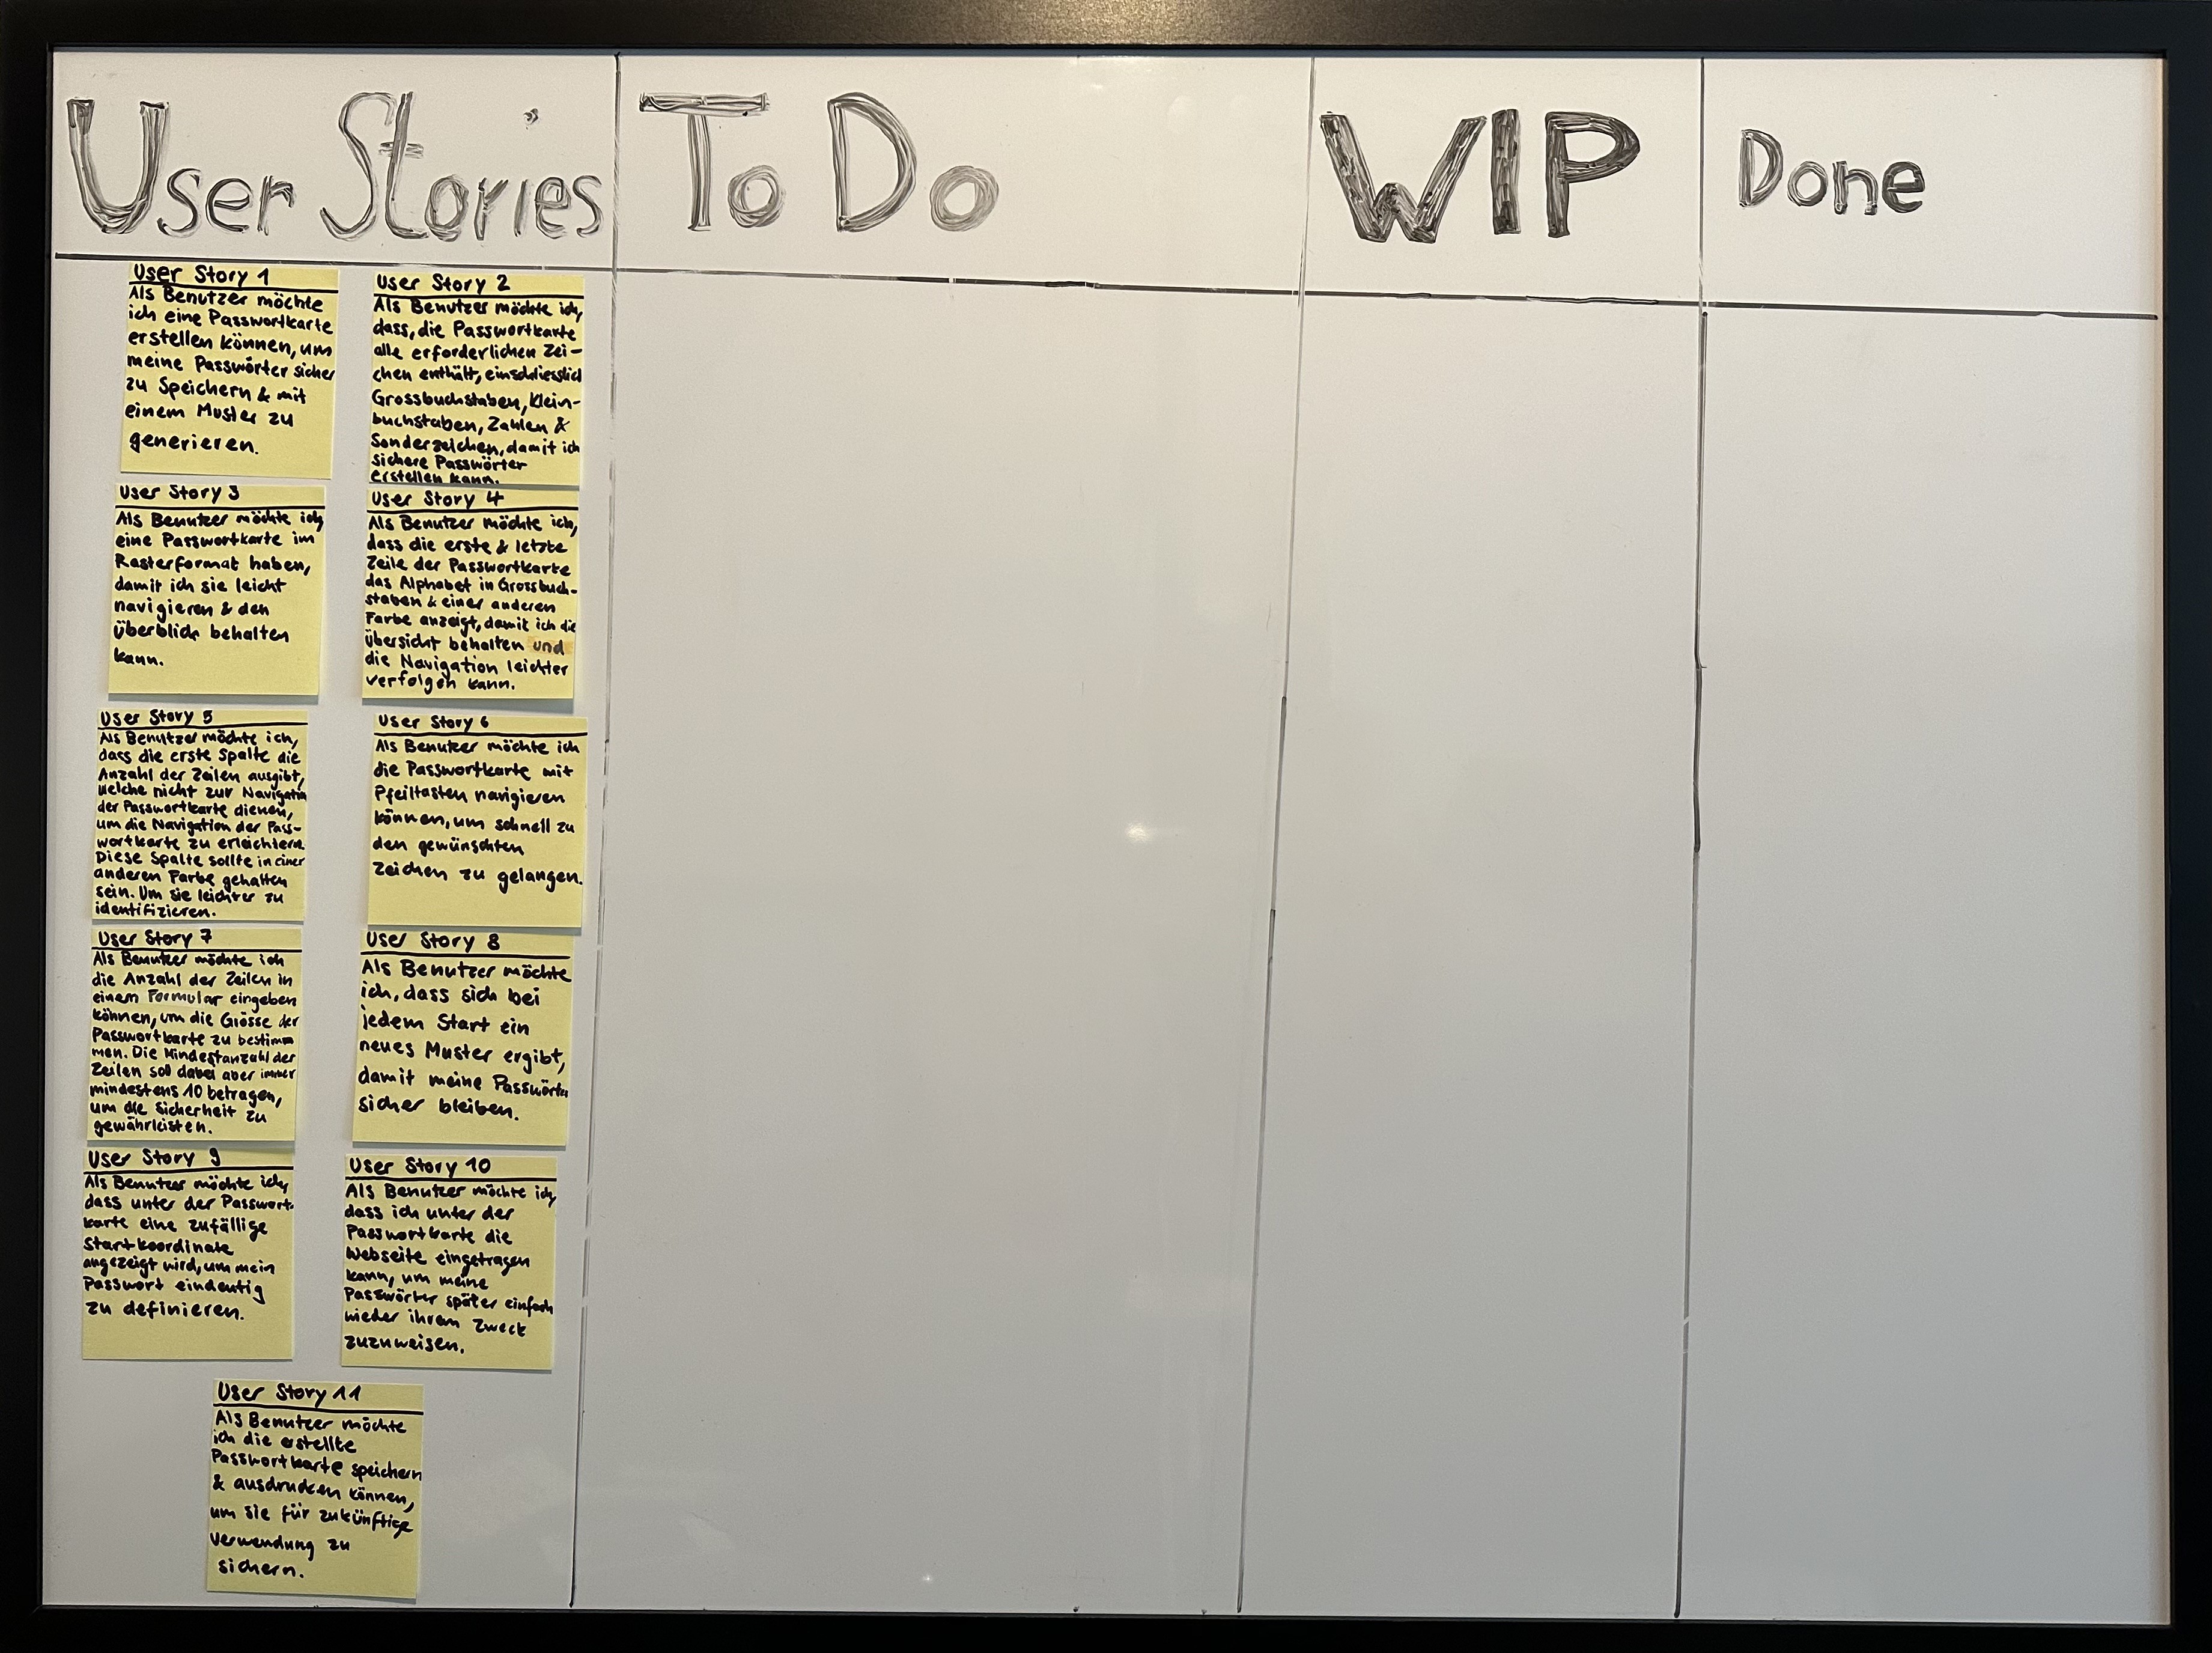 User Stories
To Do
WIP
Done
User Story 1
Als Benutzer möchte
ich eine Passwortkarte
erstellen können, um
meine Passwörter sicher
zu Speichern & mit
einem Muster zu
generieren.
User Story 2
Als Benutzer möchte ich,
dass, die Passwortkarte
alle erforderlichen Zei-
chen enthält, einschliesslich
Grossbuchstaben, Klein-
buchstaben, Zahlen &
Sonderzeichen, damit ich
sichere Passwörter
erstellen kann.
User Story 3
Als Benutzer möchte ich
eine Passwortkarte im
Rasterformat haben,
damit ich sie leicht
navigieren & den
überblick behalten
kann.
User Story 4
Als Benutzer möchte ich,
dass die erste & letzte
Zeile der Passwortkarte
das Alphabet in Grossbuch-
staben & einer anderen
Farbe anzeigt, damit ich die
übersicht behalten und
die Navigation leichter
verfolgen kann.
User Story 5
Als Benutzer möchte ich,
dass die erste Spalte die
Anzahl der Zeilen ausgibt,
welche nicht zur Navigation
der Passwortkarte dienen,
um die Navigation der Pass-
wortkarte zu erleichtern.
Diese Spalte sollte in einer
anderen Farbe gehalten
sein. Um sie leichter zu
identifizieren.
User Story 6
Als Benutzer möchte ich
die Passwortkarte mit
Pfeiltasten navigieren
können, um schnell zu
den gewünschten
Zeichen zu gelangen.
User Story 7
Als Benutzer möchte ich
die Anzahl der Zeilen in
einem Formular eingeben
können, um die Grösse der
Passwortkarte zu bestimm
men. Die Mindestanzahl der
Zeilen soll dabei aber immer
mindestens 10 betragen,
um die Sicherheit zu
gewährleisten.
User Story 8
Als Benutzer möchte
ich, dass sich bei
jedem Start ein
neues Muster ergibt,
damit meine Passwörter
sicher bleiben.
User Story 9
Als Benutzer möchte ich,
dass unter der Passwort-
karte eine zufällige
Startkoordinate
angezeigt wird, um mein
Passwort eindeutig
zu definieren.
User Story 10
Als Benutzer möchte ich,
dass ich unter der
Passwortkarte die
Webseite eingetragen
kann, um meine
Passwörter später einfach
wieder ihrem Zweck
zuzuweisen.
User Story 11
Als Benutzer möchte
ich die erstellte
Passwortkarte speichern
& ausdrucken können,
um sie für zukünftige
Verwendung zu
sichern.